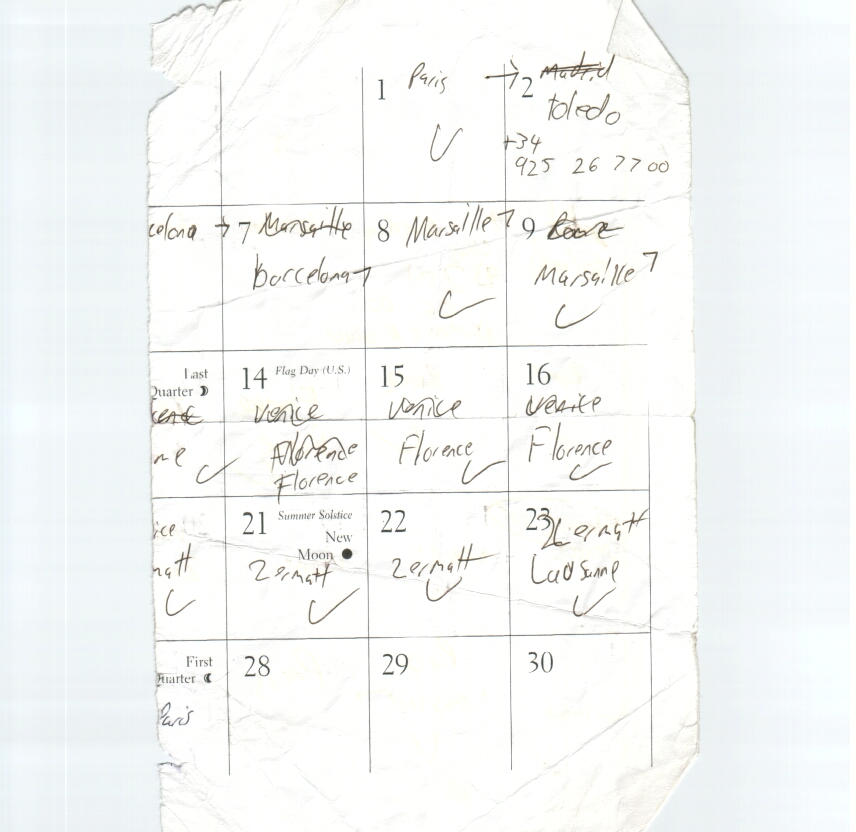 1 Paris →
2 Madrid
toledo
+34
925 26 77 00
celona →
7 Marsaille
barcelona
8 Marsaille
9
Marsaille
Last
Quarter
me
14 Flag Day (U.S.)
venice
Florence
Florence
15
venice
Florence
16
venice
Florence
ice
matt
21 Summer Solstice
New
Moon
Zermatt
22
Zermatt
23 Zermatt
Lausanne
First
Quarter
Paris
28
29
30